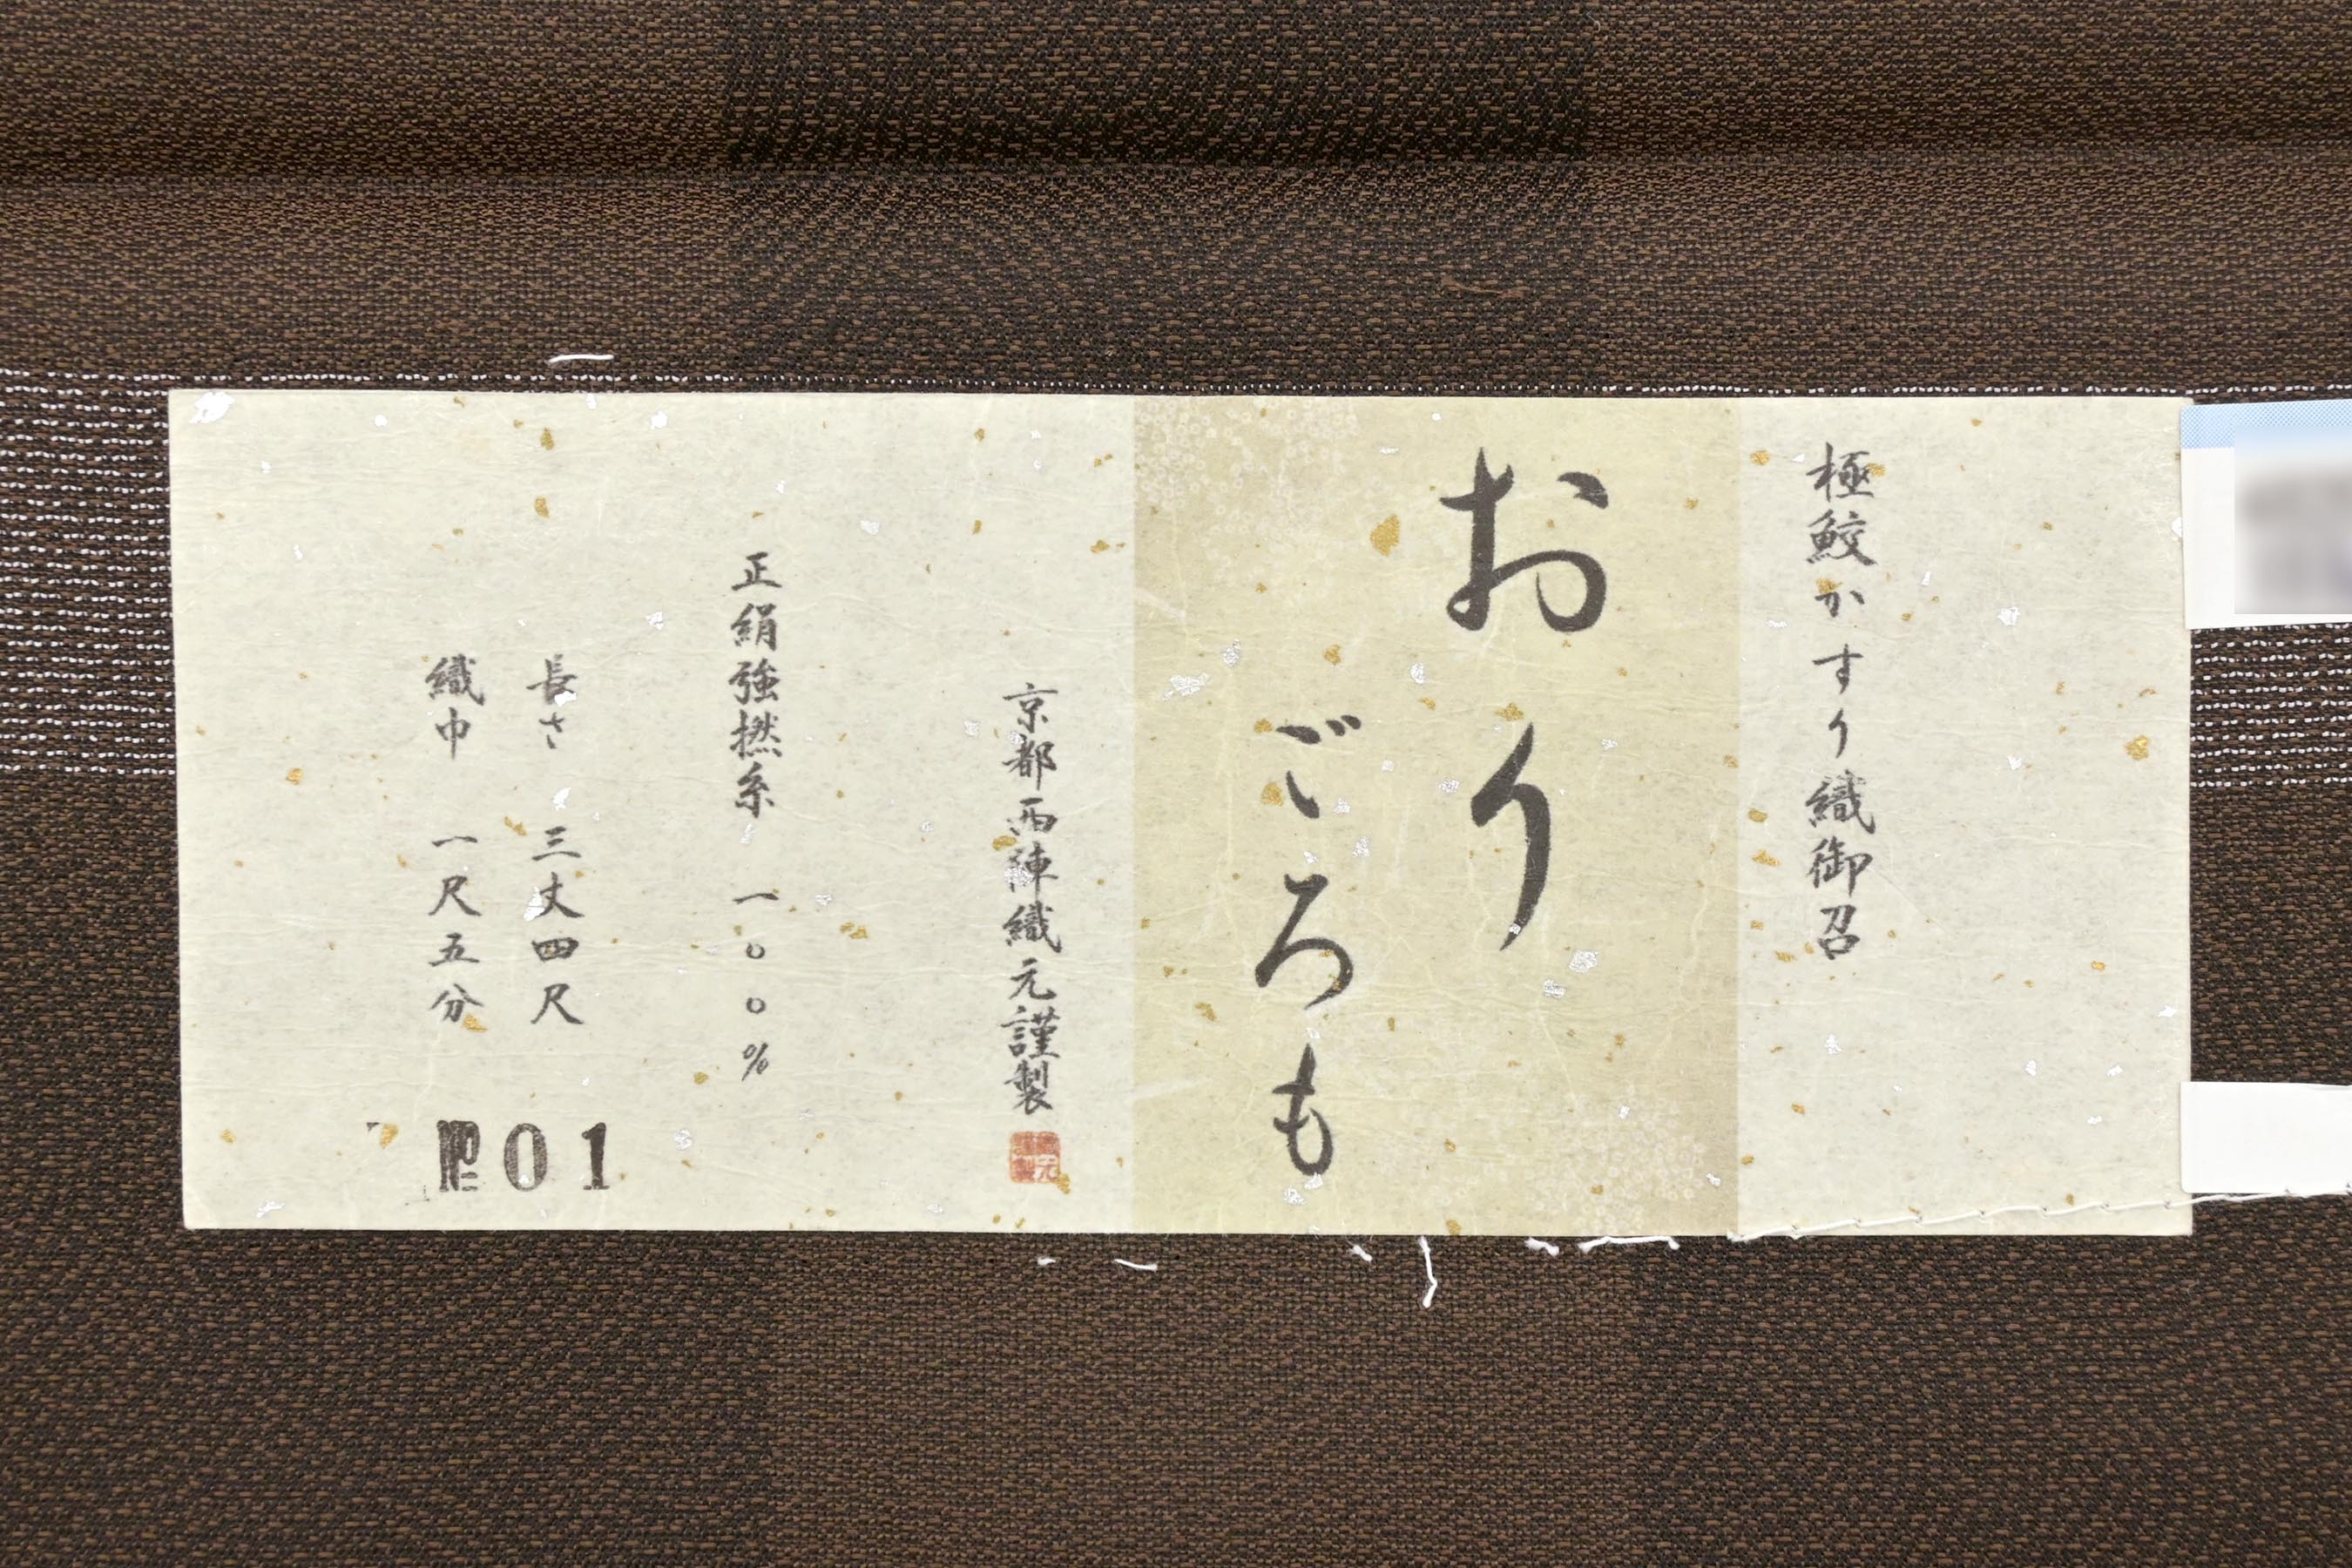 極鮫かすり織御召
おり
ごろも
京都西陣織元謹製
正絹強撚糸 一〇〇%
長さ 三丈四尺
織巾 一尺五分
01